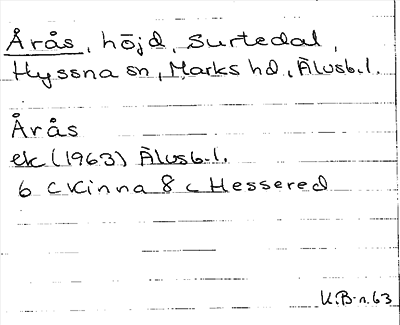 Årås, höjd, Surtedal,
Hyssna sn, Marks hd, Älvsb. l.
Årås
ek (1963) Älvsb. l.
6 c Kinna 8 c Hessered
K.B-n.63